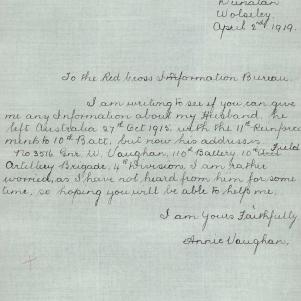 Dunstan
Wolseley
April 2nd 1919.
To the Red Cross Information Bureau.
I am writing to see if you can give
me any Information about my Husband. he
left Australia 27th Oct 1915. with the 11th Reinforce
ments to 10th Batt, but now his addresses
No 3516 Gnr. W. Vaughan, 110th Battery 10th Aust Field
Artillery Brigade, 4th Division. I am rather
worried, as I have not heard from him for some
time, so hoping you will be able to help me.
I am Yours Faithfully
Annie Vaughan.